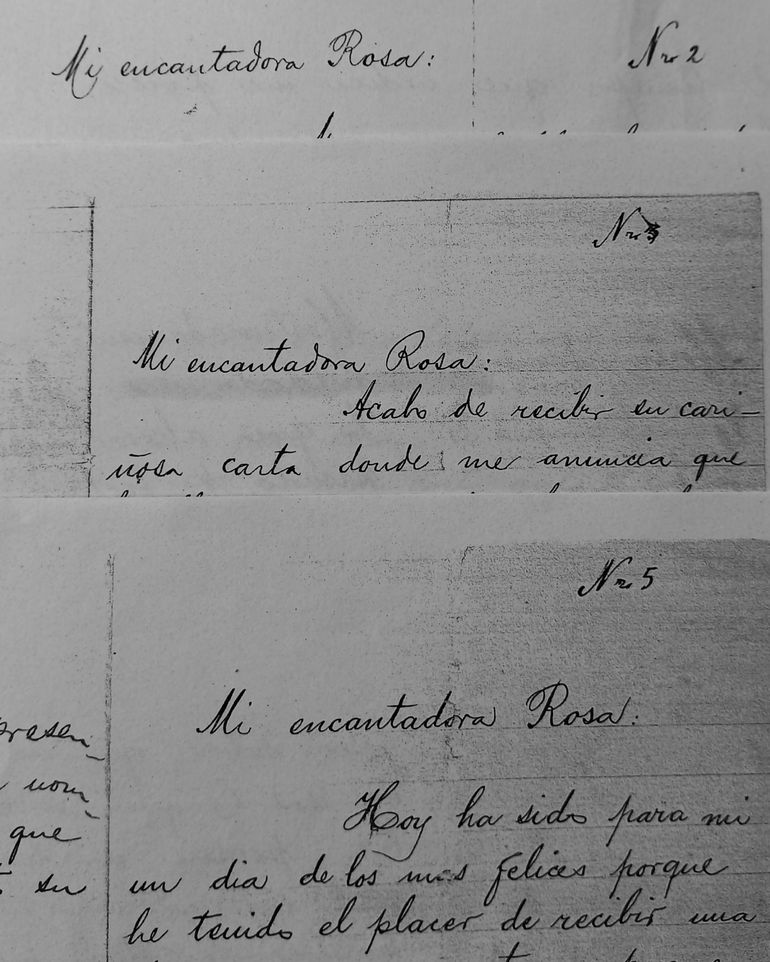 Mi encantadora Rosa: Nro 2
Nro 3
Mi encantadora Rosa:
Acabo de recibir su cari-
ñosa carta donde me anuncia que
Nro 5
Mi encantadora Rosa:
presen-
nom-
que
su
Hoy ha sido para mi
un dia de los mas felices porque
he tenido el placer de recibir una